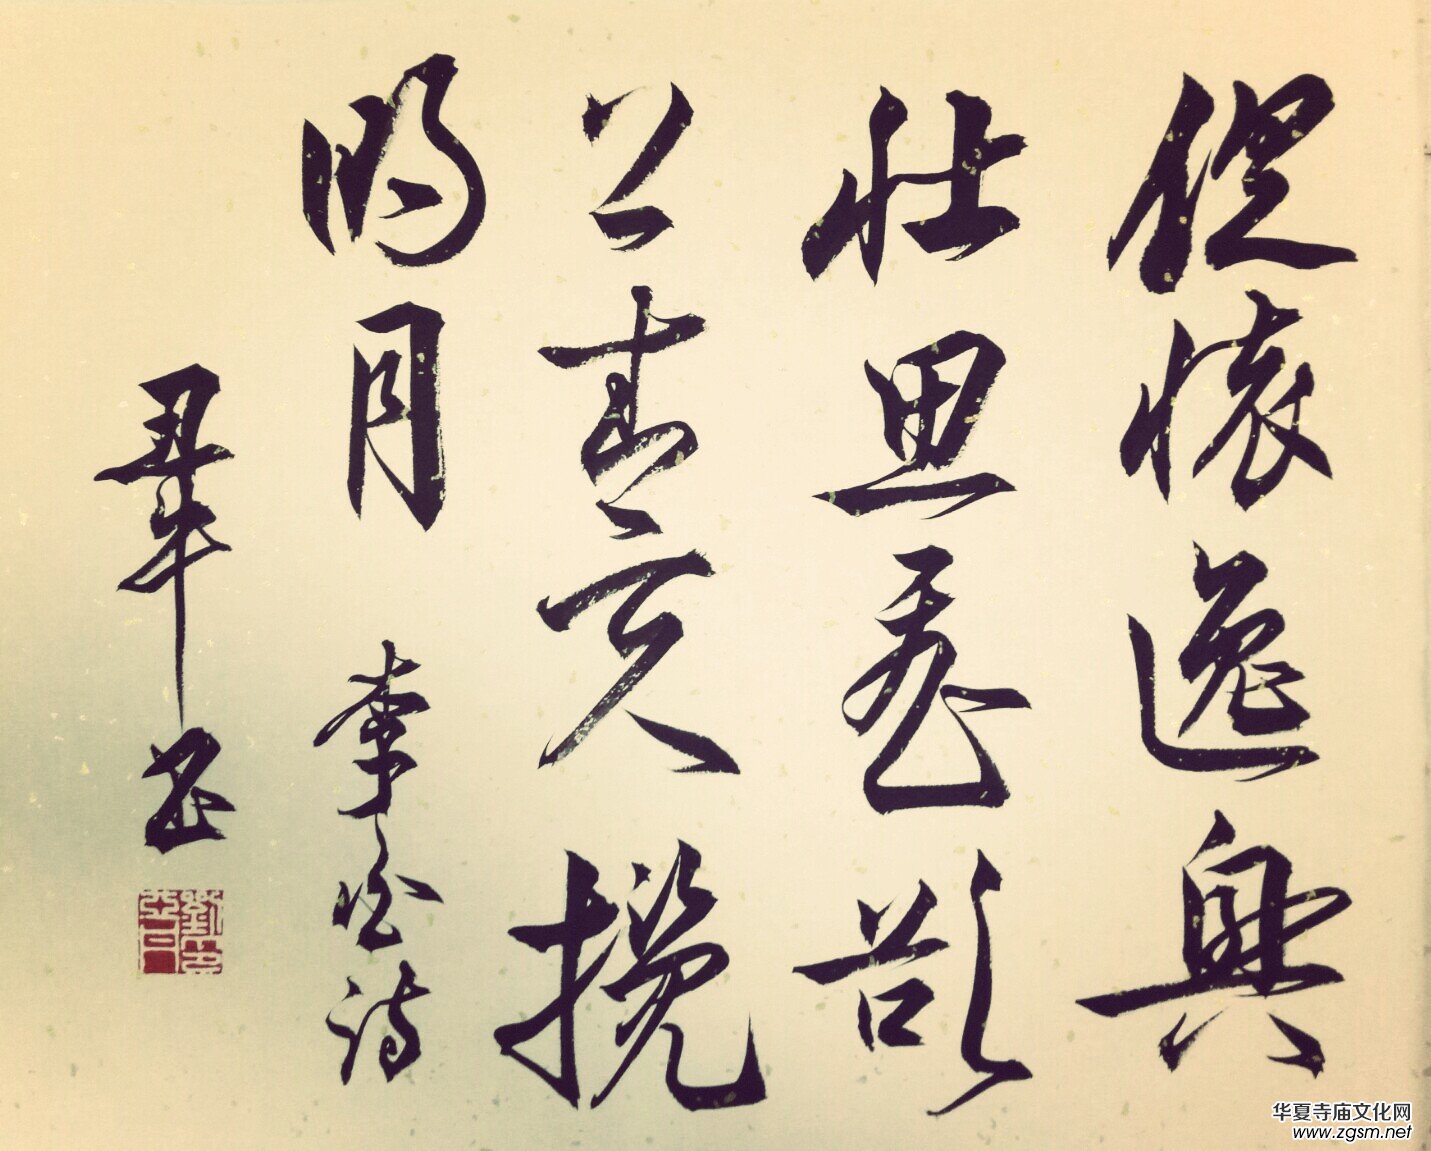 俱懷逸興
壯思飛欲
上青天攬
明月 李白詩
华夏寺庙文化网
www.zgsm.net